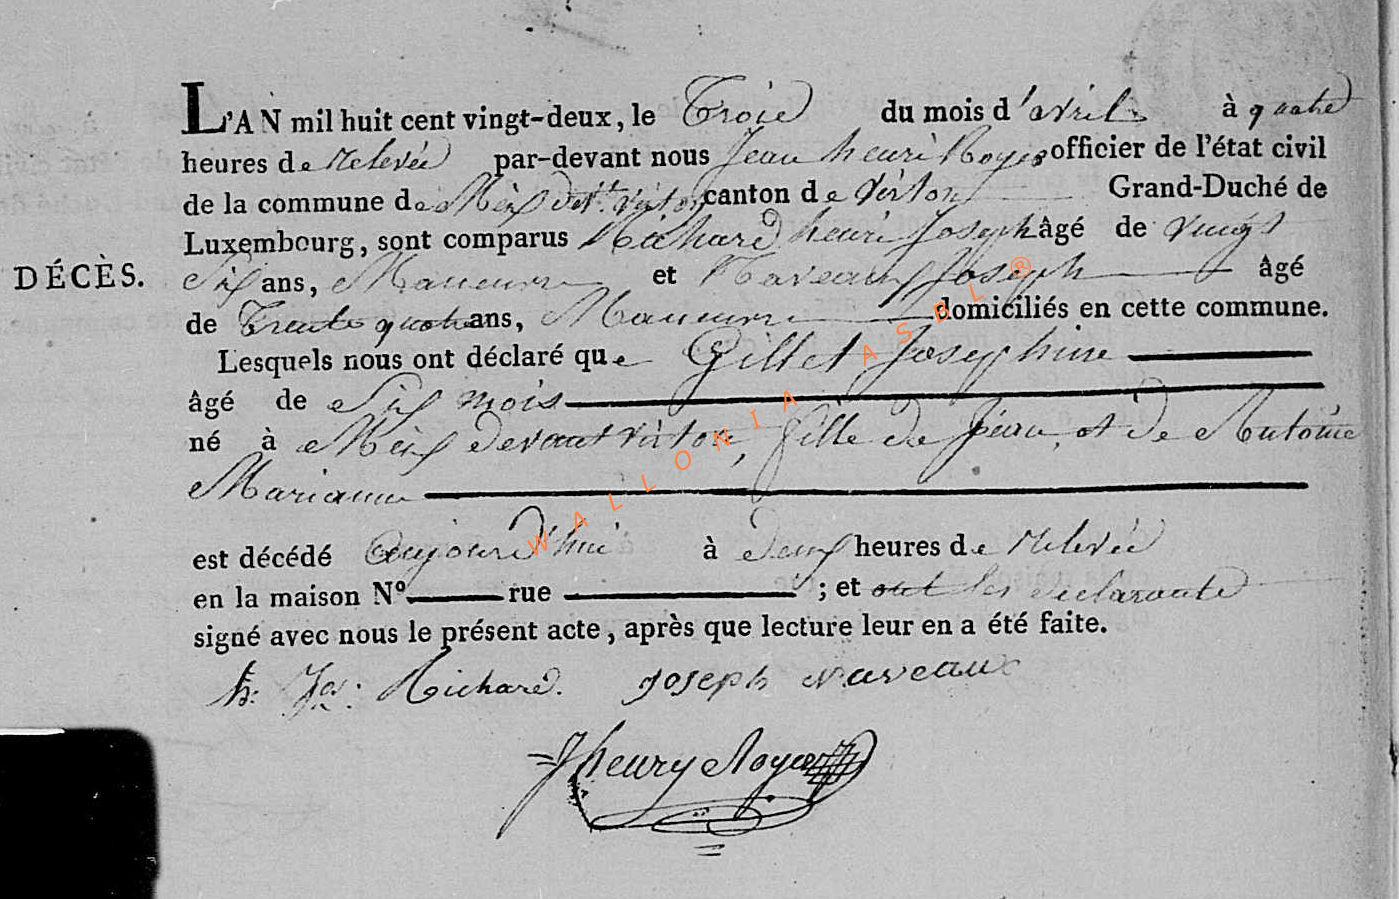 L'AN mil huit cent vingt-deux, le Trois du mois d'avril à quatre
heures de Relevée par-devant nous Jean henri Royer officier de l'état civil
de la commune de Meix devt. virton canton de Virton Grand-Duché de
Luxembourg, sont comparus Richard henri Joseph âgé de vingt
DÉCÈS.
Six ans, Manœuvre et Naveaux Joseph âgé
de Trente quatre ans, Manœuvre domiciliés en cette commune.
Lesquels nous ont déclaré que Gillet Josephine
âgé de Six mois
né à Meix devant virton, fille de Jean, et de Antoine
Marianne
est décédé aujourd'hui à deux heures de Relevée
en la maison N° rue ; et ont les déclarants
signé avec nous le présent acte, après que lecture leur en a été faite.
h: Jos: Richard. Joseph Naveaux
Jhenry Royer
WALLONIA ASBL ®